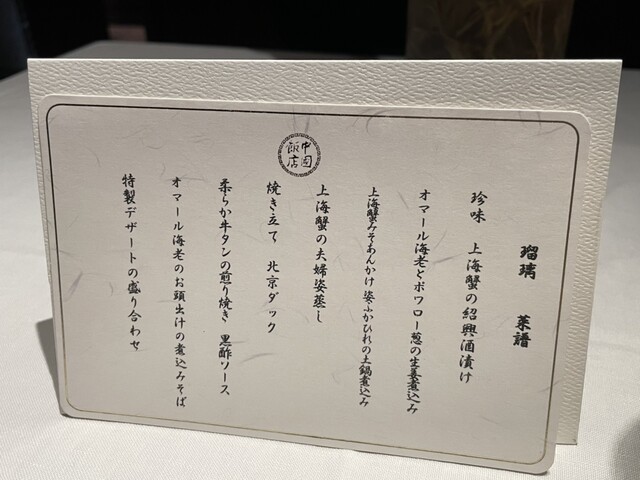 中国飯店
瑠璃 菜譜
珍味 上海蟹の紹興酒漬け
オマール海老とポワロー葱の生姜煮込み
上海蟹みそあんかけ 姿ふかひれの土鍋煮込み
上海蟹の夫婦姿蒸し
焼き立て 北京ダック
柔らか牛タンの煎り焼き 黒酢ソース
オマール海老のお頭出汁の煮込みそば
特製デザートの盛り合わせ